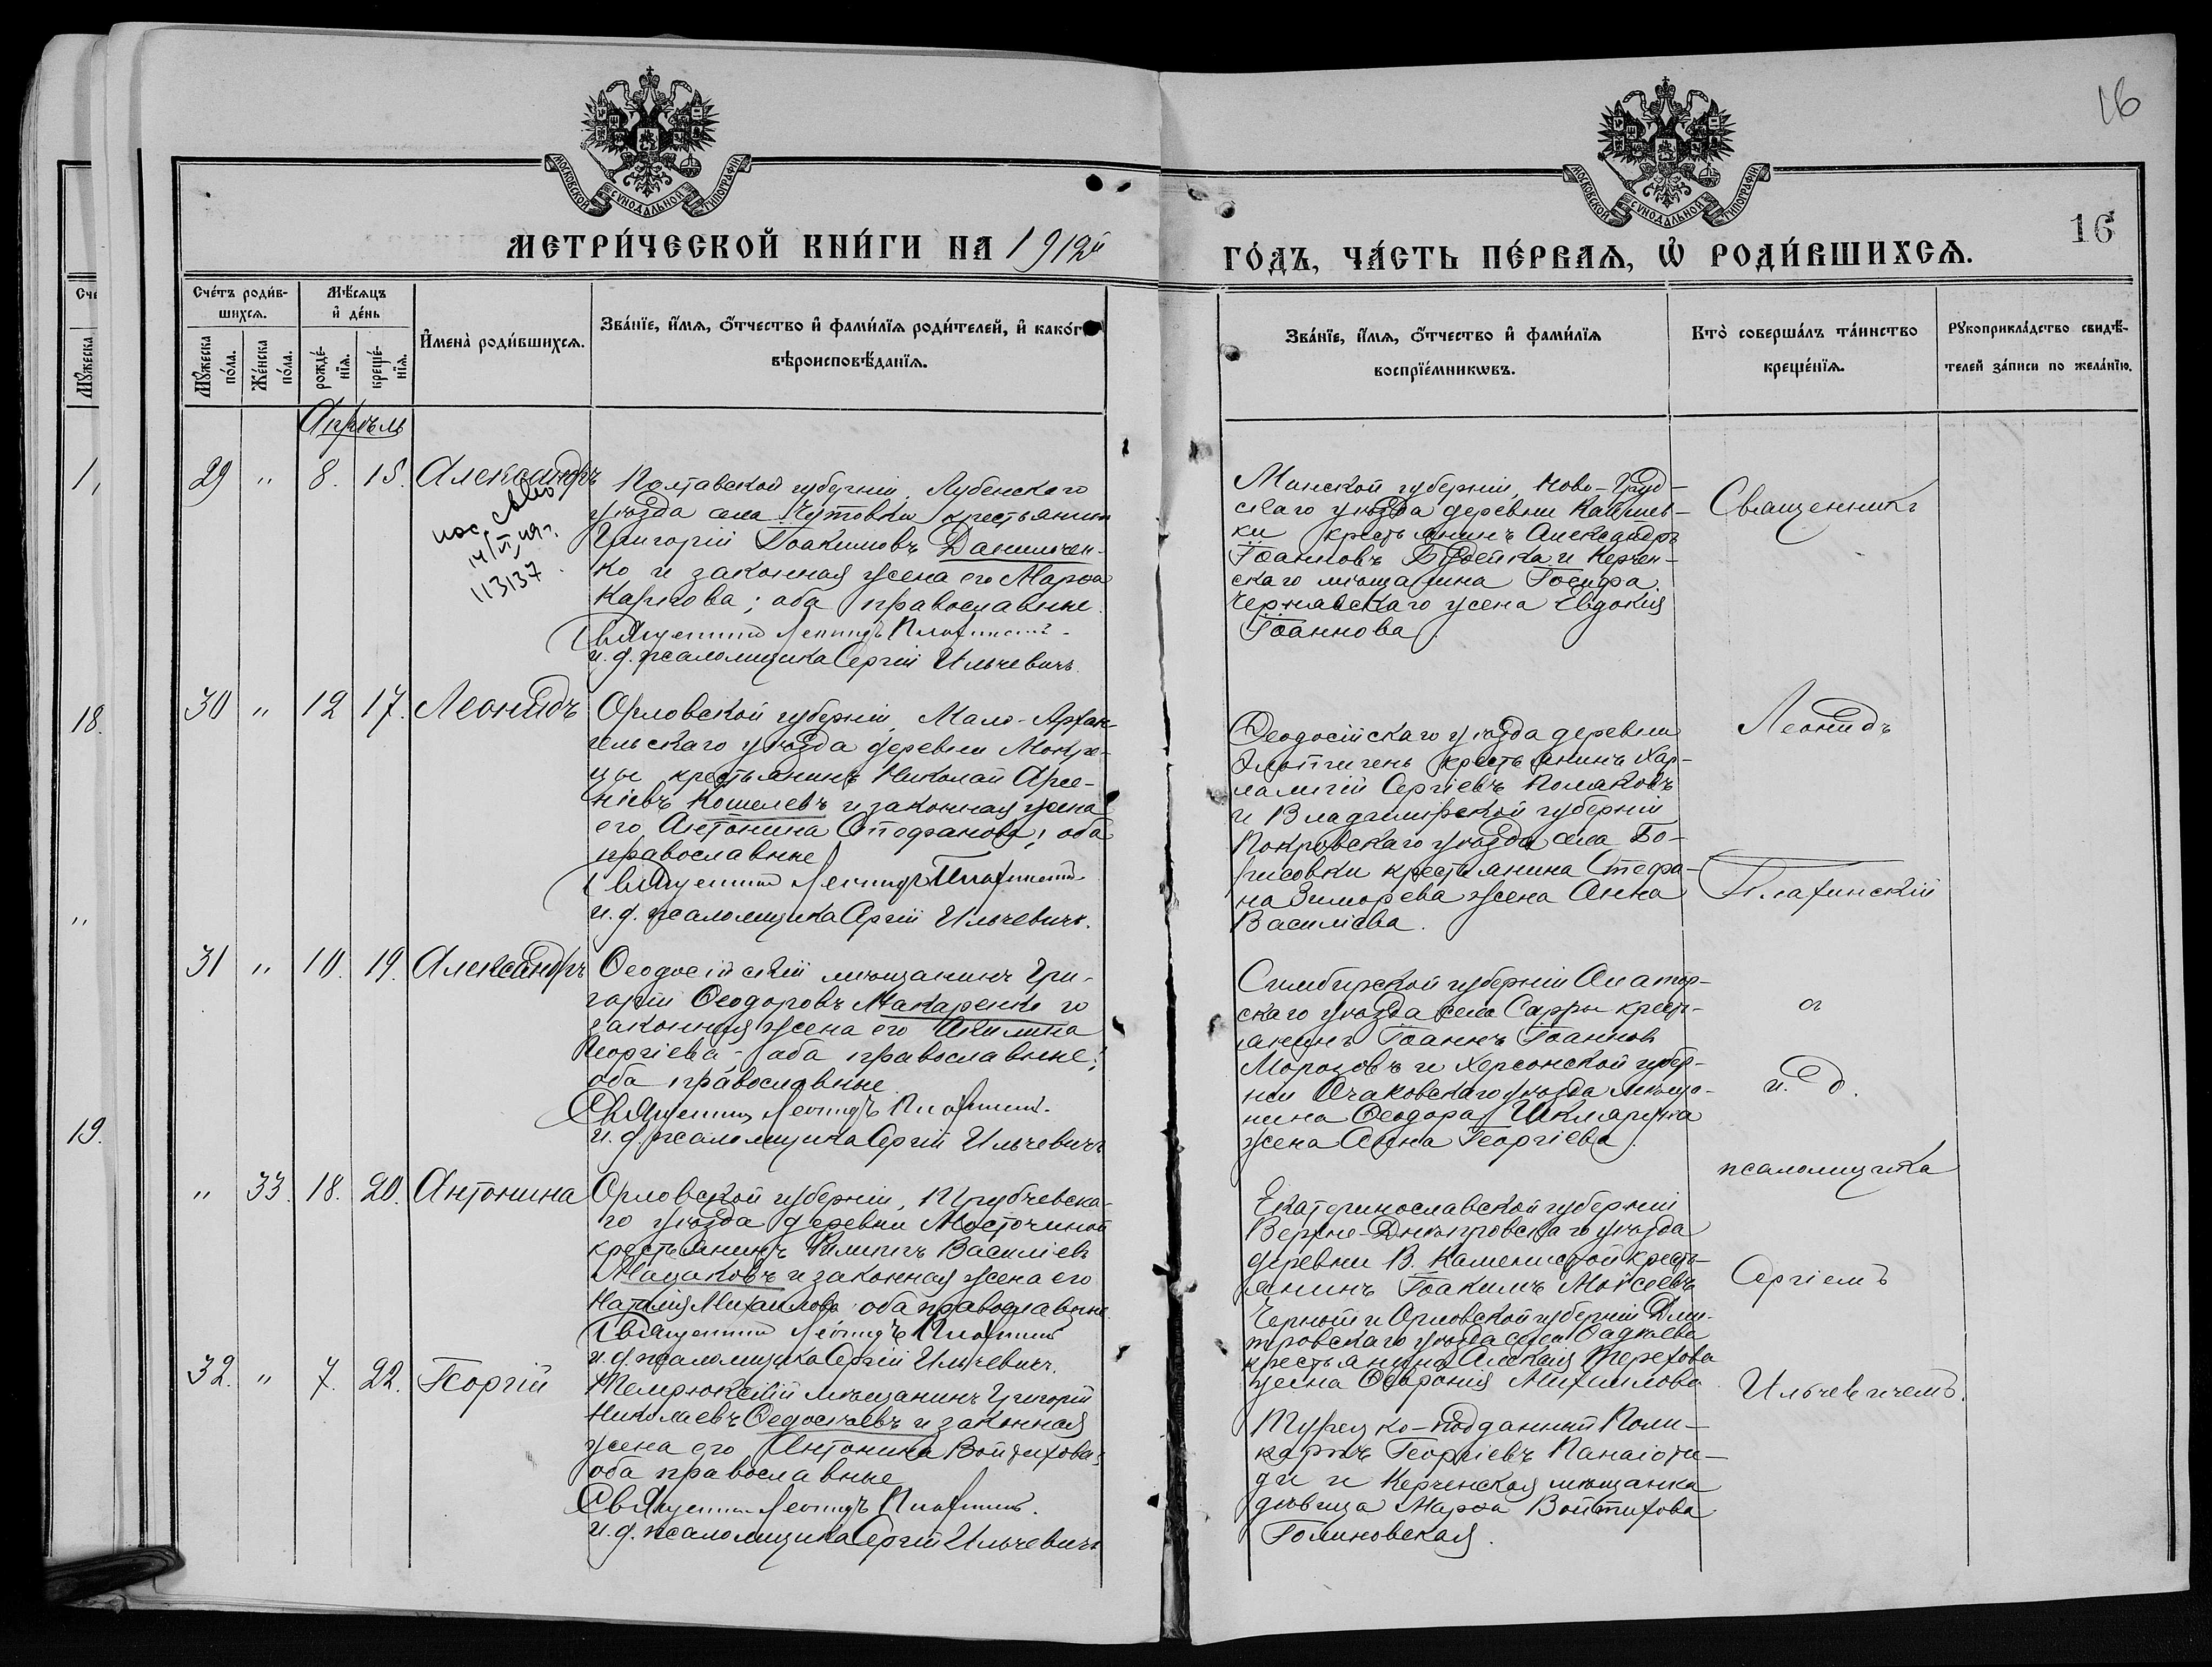 16
МОСКОВСКОЙ СѴНОДАЛЬНОЙ ТИПОГРАФІИ
МОСКОВСКОЙ СѴНОДАЛЬНОЙ ТИПОГРАФІИ
16
МЕТРИ́ЧЕСКОЙ КНИ́ГИ НА 1912й
ГО́ДЪ, ЧА́СТЬ ПЕ́РВАѦ, Ѡ҆ РОДИ́ВШИХСѦ.
Сче́тъ роди́в-
шихсѧ.
Мѣ́сѧцъ
и҆ де́нь
Мꙋ́жеска по́ла.
Же́нска по́ла.
рожде́-
нїѧ.
креще́-
нїѧ.
И҆мена̀ роди́вшихсѧ.
Зва́нїе, и҆́мѧ, ѻ҆́тчество и҆ фами́лїѧ роди́телей, и҆ како́г
вѣроисповѣ́данїѧ.
Зва́нїе, и҆́мѧ, ѻ҆́тчество и҆ фами́лїѧ
воспрїе́мникѡвъ.
Кто̀ соверша́лъ та́инство
креще́нїѧ.
Рꙋкоприкла́дство свидѣ́-
телей за́писи по жела́нїю.
Апрѣль
29 " 8. 15. Александръ
113137
Полтавской губерніи, Лубенскаго
уѣзда села Чутовки крестьянинъ
Григорій Іоакимовъ Данильчен-
ко и законная жена его Марѳа
Карпова; оба православные.
Священникъ Леонидъ Плафинскій.
и. д. псаломщика Сергій Ильчевичъ.
Минской губерніи, Ново-Груд-
скаго уѣзда деревни
ки крестьянинъ Александръ
Іоанновъ и Керчен-
скаго мѣщанина Іосифа
Чернявскаго жена Евдокія
Іоаннова.
Священникъ
30 " 12 17. Леонидъ
Орловской губерніи, Мало-Архан-
гельскаго уѣзда деревни Мокре-
цы крестьянинъ Николай Арсе-
ніевъ Кошелевъ и законная жена
его Антонина Стефанова; оба
православные
Священникъ Леонидъ Плафинскій
и. д. псаломщика Сергій Ильчевичъ.
Ѳеодосійскаго уѣзда деревни
Элтигень крестьянинъ Хар-
лампій Сергіевъ Поляковъ
и Владимірской губерніи
Покровскаго уѣзда села Бо-
рисовки крестьянина Стефа-
на Зиморева жена Анна
Василіева.
Леонидъ
Плафинскій
31 " 10. 19. Александръ
Ѳеодосійскій мѣщанинъ Гри-
горій Ѳеодоровъ Макаренко и
законная жена его Акилина
Георгіева - оба православные;
оба православные
Священникъ Леонидъ Плафинскій.
и. д. псаломщика Сергій Ильчевичъ
Симбирской губерніи Алатыр-
скаго уѣзда села Сарры крест-
янинъ Іоаннъ Іоанновъ
Морозовъ и Херсонской губер-
ніи Очаковскаго уѣзда мѣща-
нина Ѳеодора Шклярука
жена Анна Георгіева.
съ
и. д.
псаломщика
" 33. 18. 20. Антонина
Орловской губерніи, Трубчевска-
го уѣзда деревни Мосточиной
крестьянинъ Филиппъ Василіевъ
Мацаковъ и законная жена его
Наталія Михаилова оба православные
Священникъ Леонидъ Плафинскій
и. д. псаломщика Сергій Ильчевичъ.
Екатеринославской губерніи
Верхне-Днѣпровскаго уѣзда
деревни В. Каменистой крест-
янинъ Іоакимъ Моисеевъ
Черный и Орловской губерніи Дми-
тровскаго уѣзда села
крестьянина Алексія Терехова
жена Ѳеофанія Михаилова
Сергіемъ
32. " 7. 22. Георгій
Темрюкскій мѣщанинъ Григорій
Николаевъ Ѳедосѣевъ и законная
жена его Антонина Войтихова;
оба православные
Священникъ Леонидъ Плафинскій.
и. д. псаломщика Сергій Ильчевичъ
Турецко-подданный Поли-
карпъ Георгіевъ Панаіоти-
ди и Керченская мѣщанка
дѣвица Марѳа Войтихова
Голиновская.
Ильчевичемъ.